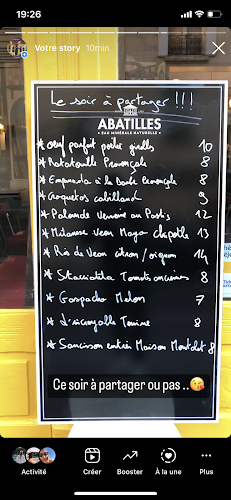 19:26
Votre story 10min
Le soir à partager !!!
ABATILLES
• EAU MINÉRALE NATURELLE •
* Oeuf parfait poche girolles 10
* Ratatouille Provençale 8
* Empanada à la Daube Provençale 8
* Croquetas cabillaud 9
* Palourde Verveine au Pastis 12
* Milanese Veau Mayo chipotle 13
* Ris de Veau citron/origan 14
* Stracciatella Tomates anciennes 8
* Gaspacho Melon 7
* L'incroyable Terrine 8
* Saucisson entier Maison Montalet 8
Ce soir à partager ou pas ..🥰
Activité
Créer
Booster
À la une
Plus